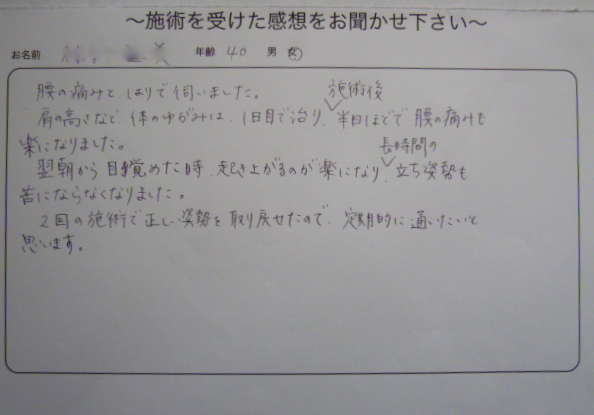 ～施術を受けた感想をお聞かせ下さい～
お名前 年齢 40 男 女
腰の痛みと、はりで伺いました。
施術後
肩の高さなど、体のゆがみは、1日目で治り、半日ほどで腰の痛みも
楽になりました。
長時間の
翌朝から目覚めた時、起き上がるのが楽になり、立ち姿勢も
苦にならなくなりました。
2回の施術で正しい姿勢を取り戻せたので、定期的に通いたいと
思います。